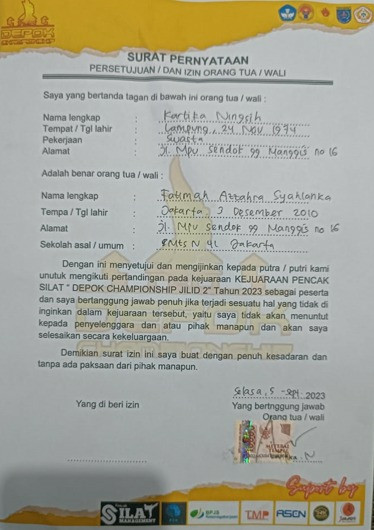 DEPOK
CHAMPIONSHIP
SURAT PERNYATAAN
PERSETUJUAN / DAN IZIN ORANG TUA / WALI
Saya yang bertanda tagan di bawah ini orang tua / wali :
Nama lengkap : Kartika Ningsih
Tempat / Tgl lahir : Lampung, 24 Nov 1974
Pekerjaan : Swasta
Alamat : Jl. Mpu Sendok gg Manggis no 16
Adalah benar orang tua / wali :
Nama lengkap : Fatimah Azzahra Syahlanka
Tempa / Tgl lahir : Jakarta, 3 Desember 2010
Alamat : Jl. Mpu Sendok gg Manggis no 16
Sekolah asal / umum : MTs N 42 Jakarta
Dengan ini menyetujui dan mengijinkan kepada putra / putri kami
unutuk mengikuti pertandingan pada kejuaraan KEJUARAAN PENCAK
SILAT " DEPOK CHAMPIONSHIP JILID 2" Tahun 2023 sebagai peserta
dan saya bertanggung jawab penuh jika terjadi sesuatu hal yang tidak di
inginkan dalam kejuaraan tersebut, yaitu saya tidak akan menuntut
kepada penyelenggara dan atau pihak manapun dan akan saya
selesaikan secara kekeluargaan.
Demikian surat izin ini saya buat dengan penuh kesadaran dan
tanpa ada paksaan dari pihak manapun.
Selasa, 5 - Sept 2023
Yang di beri izin
Yang bertnggung jawab
Orang tua / wali
METERAI
TEMPEL
Suport by
SILAT
MANAGEMENT
BPJS
TMP
ASCEN